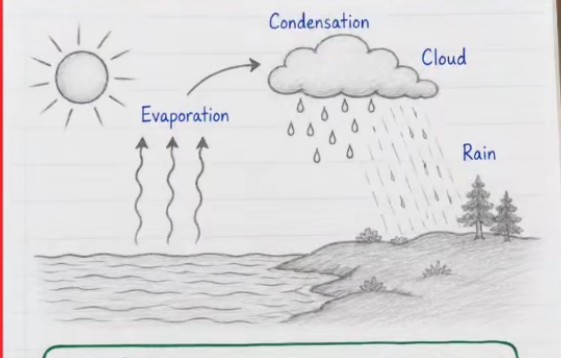 Condensation
Cloud
Evaporation
Rain